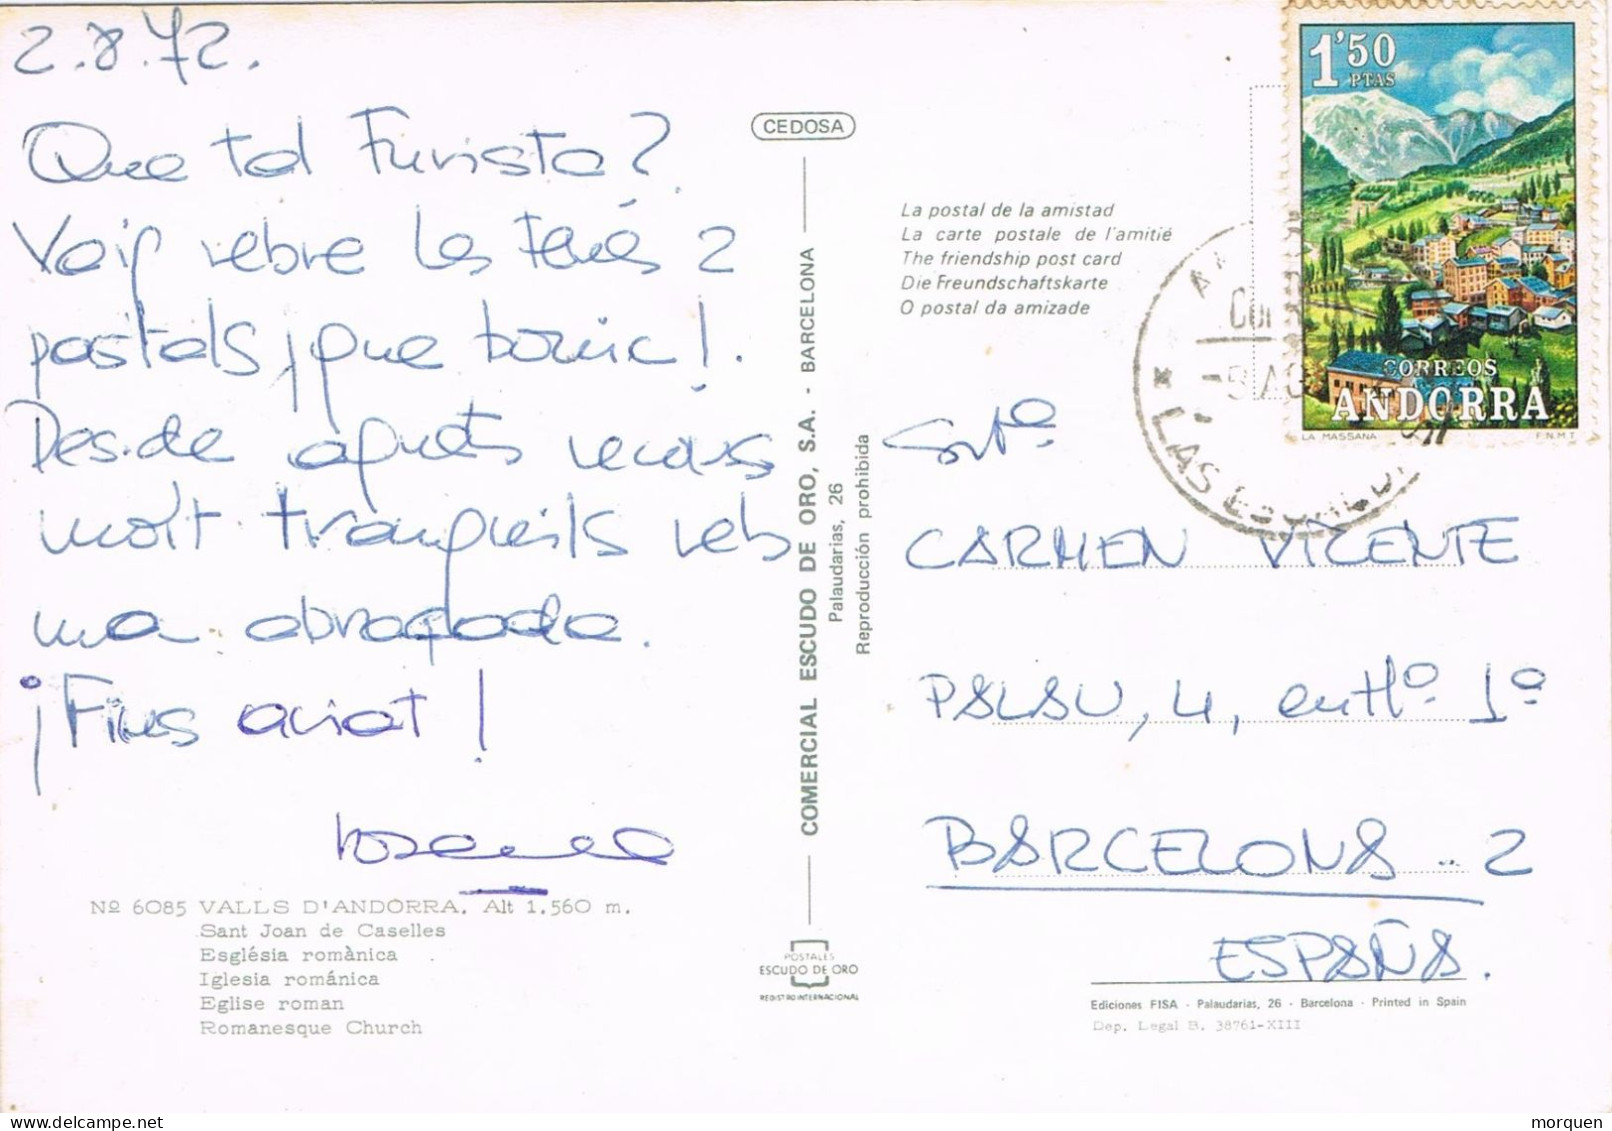 2.8.72.
Que tal Furista?
Vaig rebre les teves 2
postals ¡que bonic!.
Des-de aquets recons
molt tranquils reb
una abraçada.
¡Fins aviat!
Nº 6085 VALLS D'ANDORRA. Alt 1.560 m.
Sant Joan de Caselles
Església romànica
Iglesia románica
Eglise roman
Romanesque Church
CEDOSA
COMERCIAL ESCUDO DE ORO, S.A. - BARCELONA
Palaudarias, 26
Reproducción prohibida
POSTALES
ESCUDO DE ORO
REGISTRO INTERNACIONAL
La postal de la amistad
La carte postale de l'amitié
The friendship post card
Die Freundschaftskarte
O postal da amizade
1'50
PTAS
CORREOS
ANDORRA
LA MASSANA F.N.M.T
LAS ESCALDAS
Srtª
CARMEN VICENTE
PALAU, 4, entlº 1º
BARCELONA - 2
ESPAÑA.
Ediciones FISA - Palaudarias, 26 - Barcelona - Printed in Spain
Dep. Legal B. 38761-XIII
delcampe.net
morquen